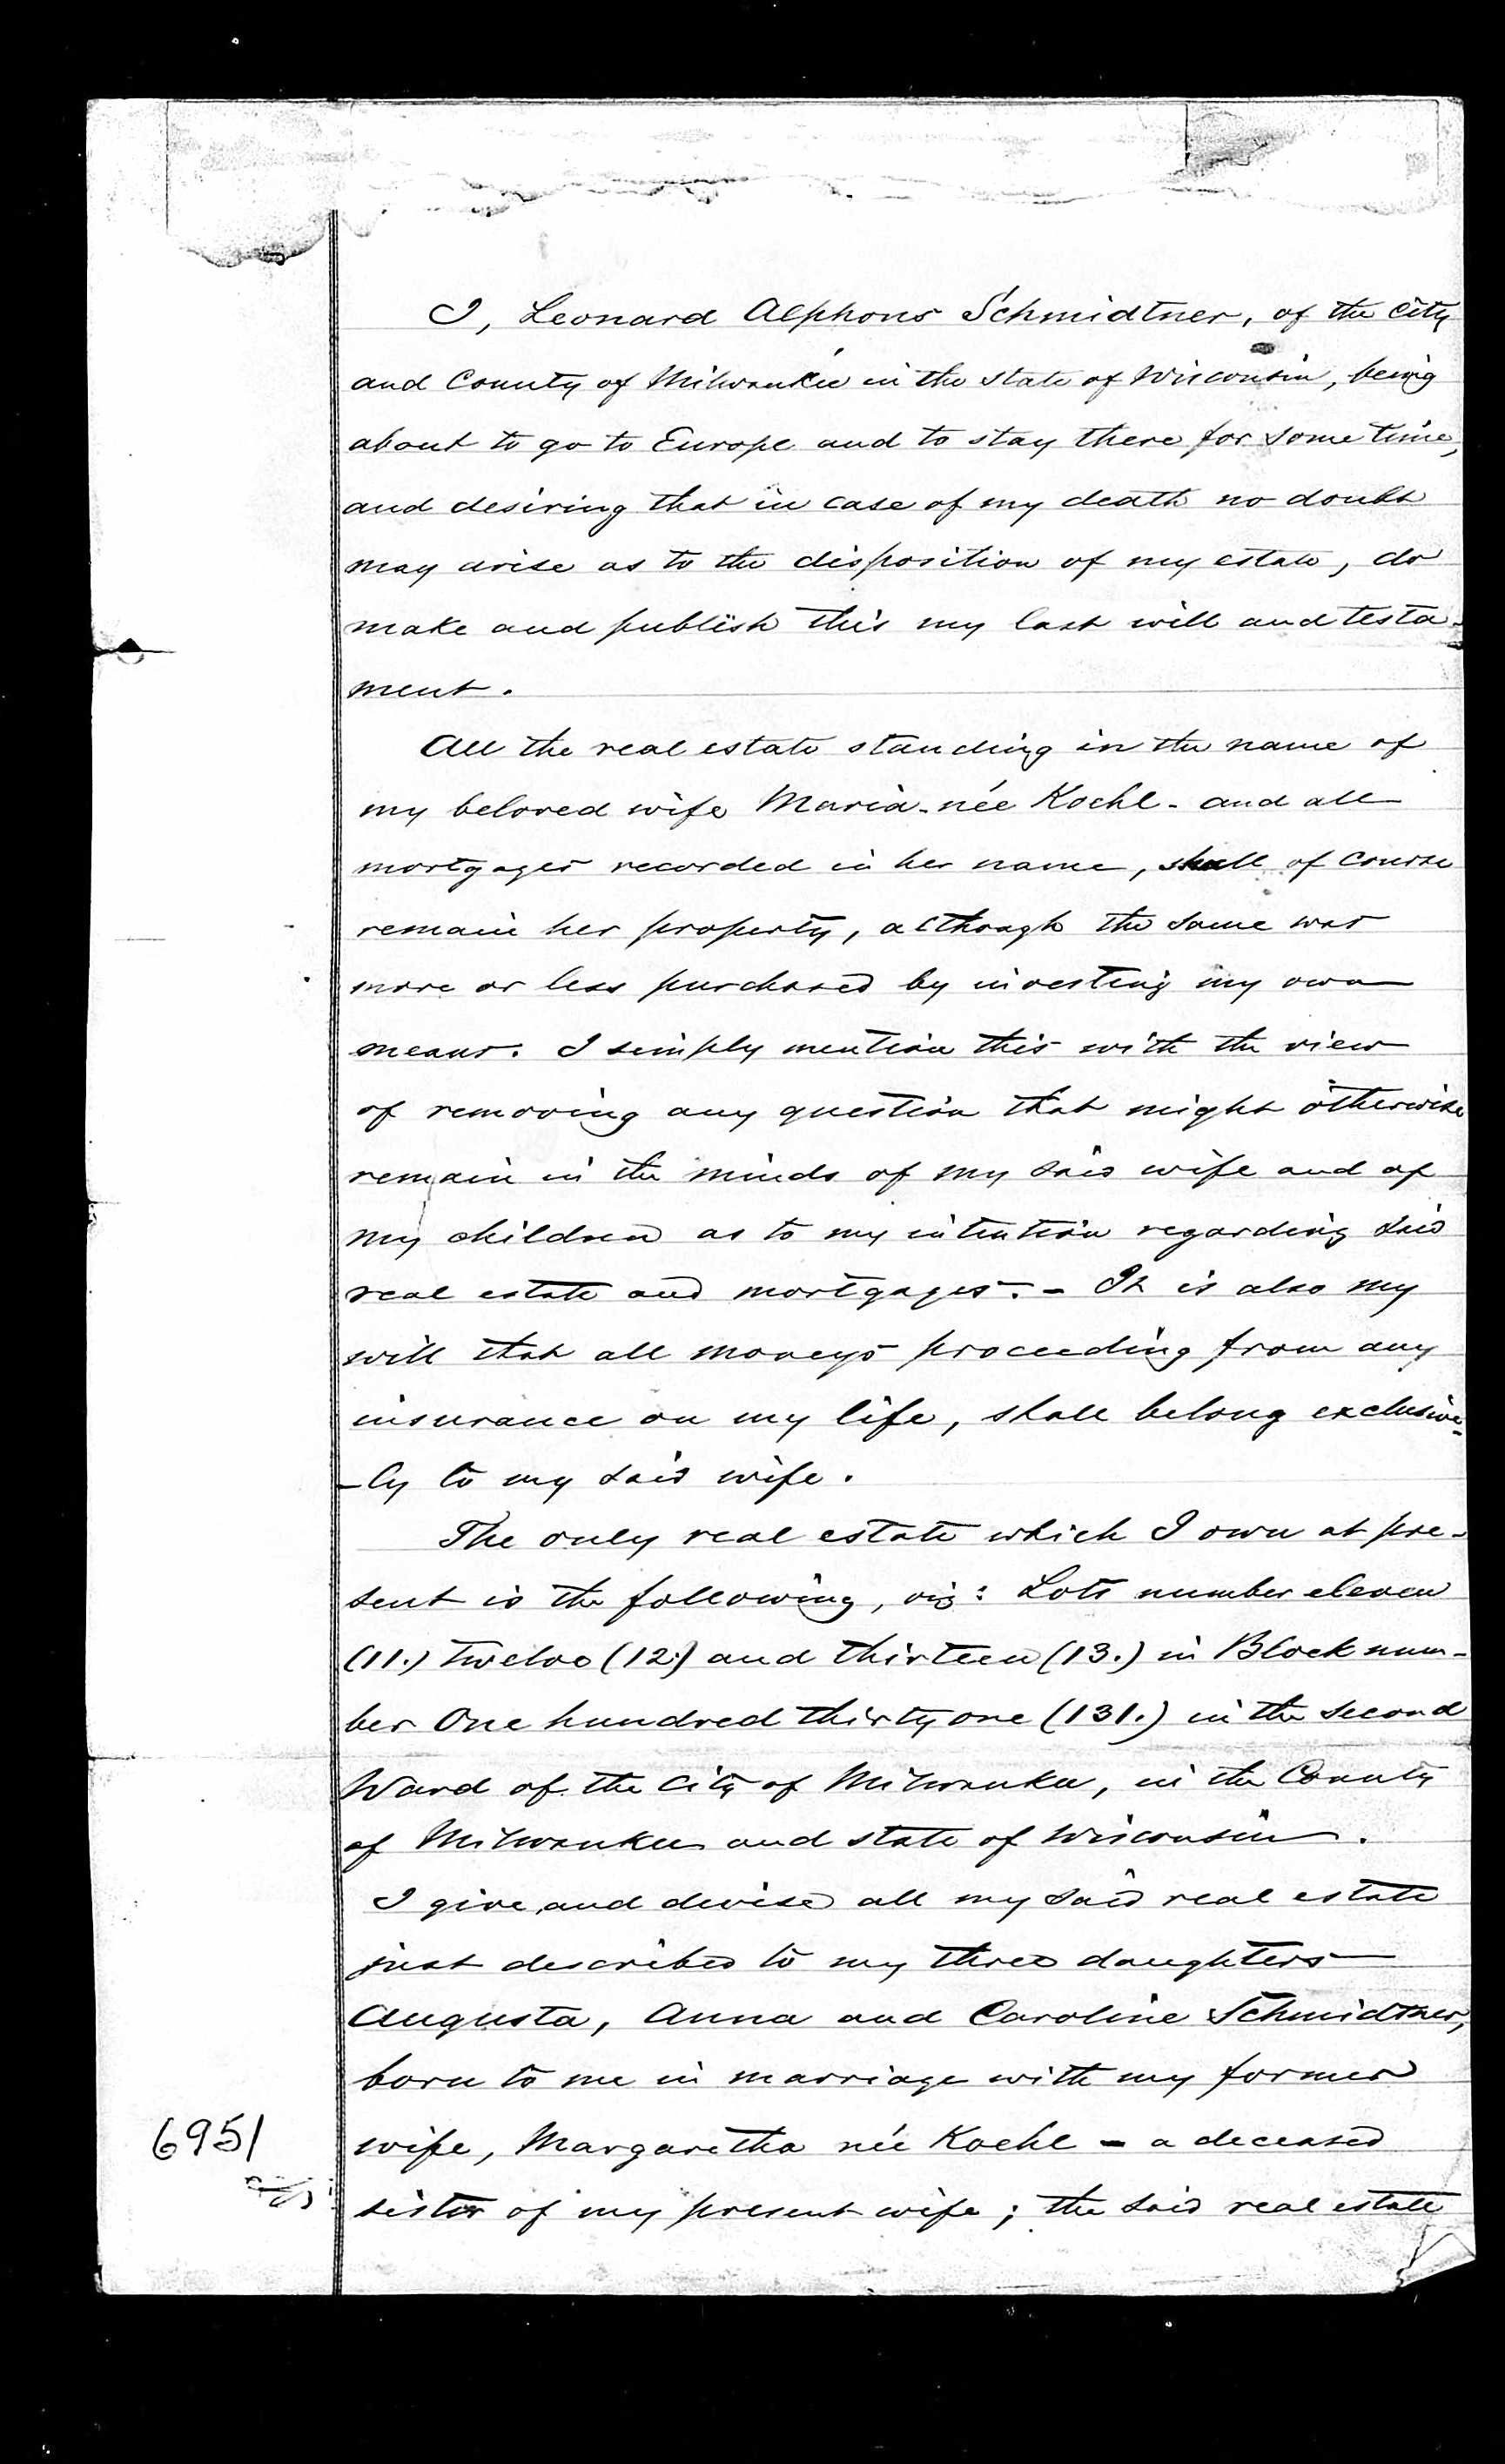 I, Leonard Alphons Schmidtner, of the City
and County of Milwaukee in the State of Wisconsin, being
about to go to Europe and to stay there for some time,
and desiring that in case of my death no doubt
may arise as to the disposition of my estate, do
make and publish this my last will and testa-
ment.
All the real estate standing in the name of
my beloved wife Maria - née Koehl - and all
mortgages recorded in her name, shall of course
remain her property, although the same was
more or less purchased by investing my own
means. I simply mention this with the view
of removing any question that might otherwise
remain in the minds of my said wife and of
my children as to my intention regarding said
real estate and mortgages. - It is also my
will that all moneys proceeding from any
insurance on my life, shall belong exclusive-
-ly to my said wife.
The only real estate which I own at pre-
sent is the following, viz: Lots number eleven
(11.) twelve (12.) and thirteen (13.) in Block num-
ber One hundred thirty one (131.) in the second
Ward of the City of Milwaukee, in the County
of Milwaukee and state of Wisconsin.
I give and devise all my said real estate
just described to my three daughters
Augusta, Anna and Caroline Schmidtner,
born to me in marriage with my former
wife, Margaretha née Koehl - a deceased
sister of my present wife; the said real estate
6951